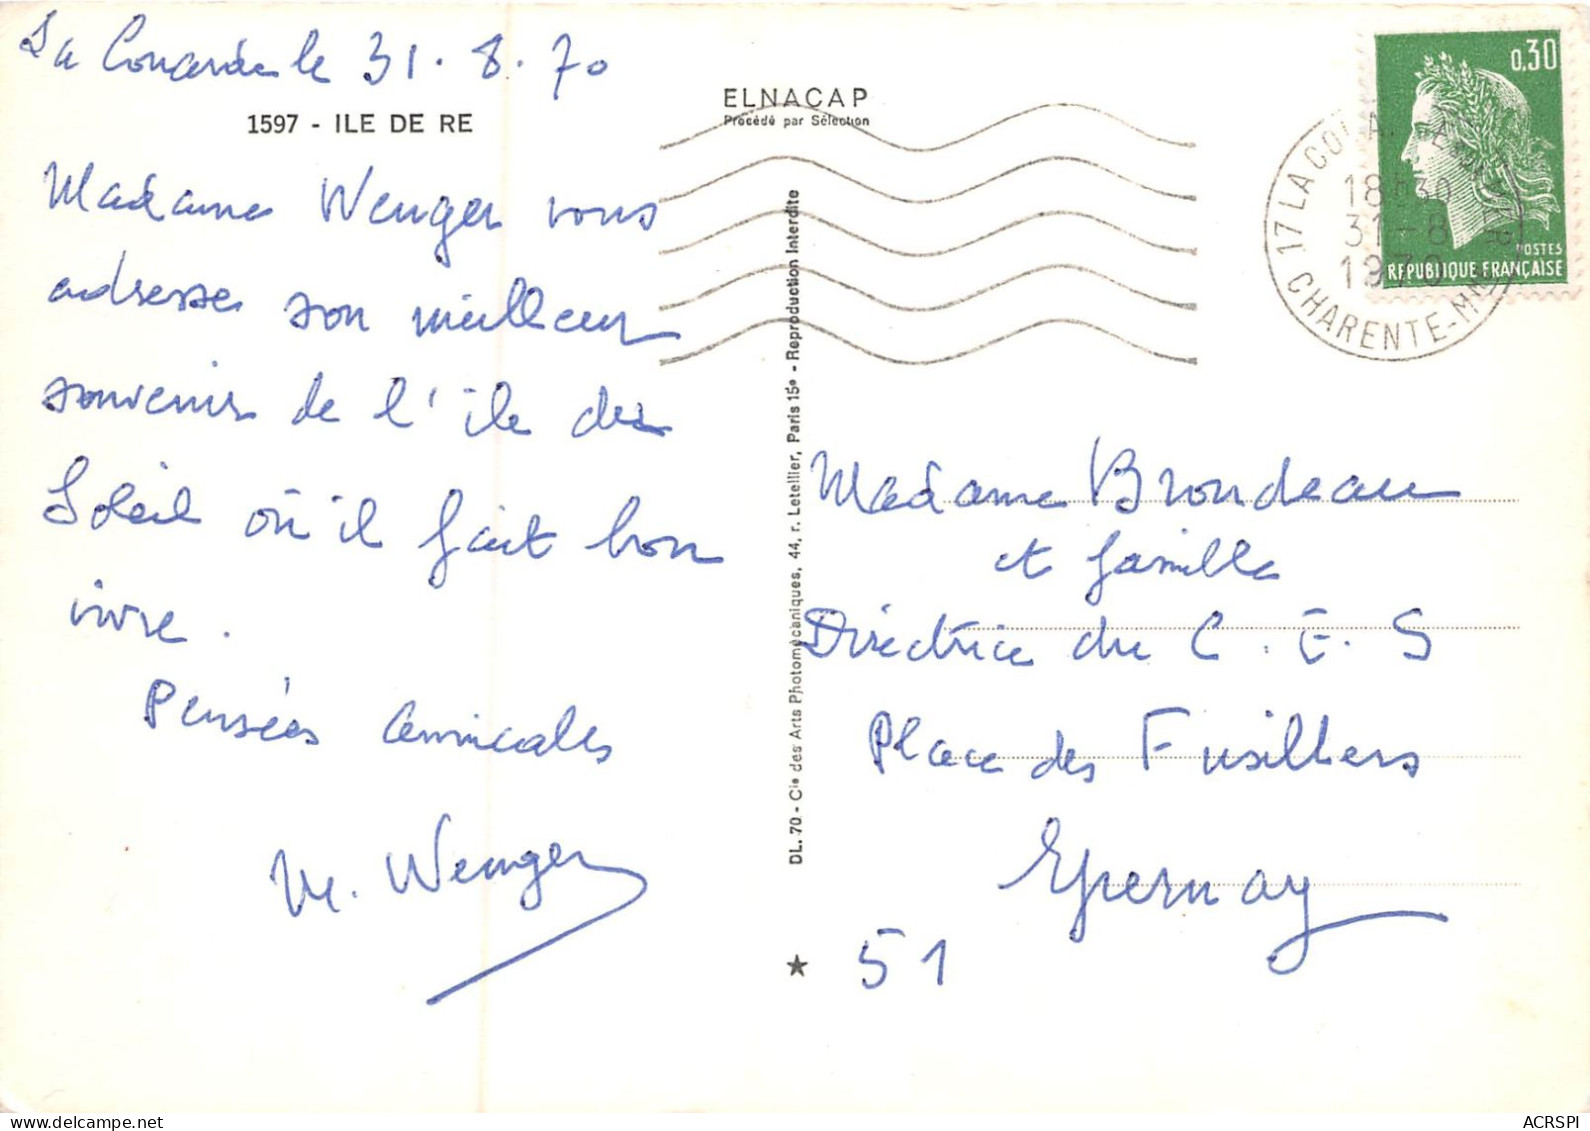 La Couarde le 31.8.70
1597 - ILE DE RE
Madame Wenger vous
adresse son meilleur
souvenir de l'île du
Soleil où il fait bon
vivre.
Pensées Amicales
M. Wenger
ELNACAP
Procédé par Sélection
DL. 70 - Cie des Arts Photomécaniques, 44, r. Letellier, Paris 15e - Reproduction Interdite
0,30
POSTES
REPUBLIQUE FRANÇAISE
17 LA COUARDE
18H30
31-8
1970
CHARENTE-MME
Madame Brondeau
et famille
Directrice du C.E.S
Place des Fusillers
Epernay
51
ACRSPI